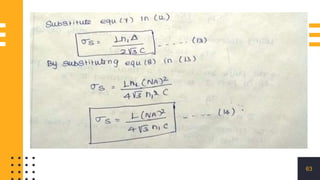 Substitute equ (7) in (12)
σs = Ln₁Δ / 2√3 C ----- (13)
By substituting equ (8) in (13)
σs = Ln₁ (NA)² / 4√3 n₁² C
σs = L (NA)² / 4√3 n₁ C ---- (14) .
63